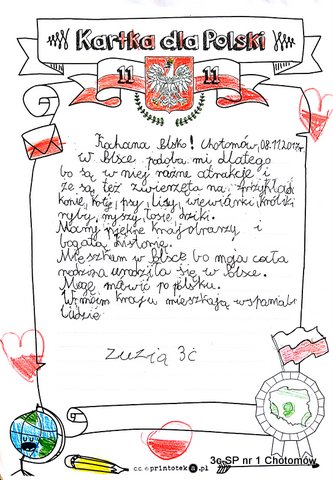 Kartka dla Polski
11 11
Kochana Polsko! Chotomów, 08.11.2017r.
W Polsce podoba mi dlatego
bo są w niej różne atrakcje i
że są też zwierzęta na przykład
konie, koty, psy, lisy, wiewiórki, króliki
ryby, myszy, łosie, dziki.
Mamy piękne krajobrazy i
bogatą historię.
Mieszkam w Polsce bo moja cała
rodzina urodziła się w Polsce.
Mogę mówić po polsku.
W moim kraju mieszkają wspaniali
ludzie
zuzia 3c
9
3c SP nr 1 Chotomów
printotek .pl